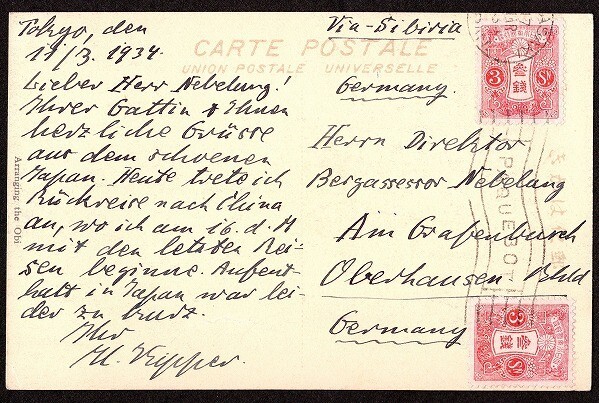 Tokyo, den
11/3. 1934.
Lieber Herr Nebelung!
Ihrer Gattin & Ihnen
herzliche Grüsse
aus dem schoenen
Japan. Heute trete ich
Rückreise nach China
an, wo ich am 16. d. M
mit den letzten Rei-
sen beginne. Aufent-
halt in Japan war lei-
der zu kurz.
Ihr
Arranging the Obi
CARTE POSTALE
UNION POSTALE UNIVERSELLE
Via-Sibiria
Germany.
Herrn Direktor
Bergassessor Nebelung
Am Grafenbusch
Oberhausen Rhld
Germany
3 参銭 Sn
PAQUEBOT
3 参銭 Sn